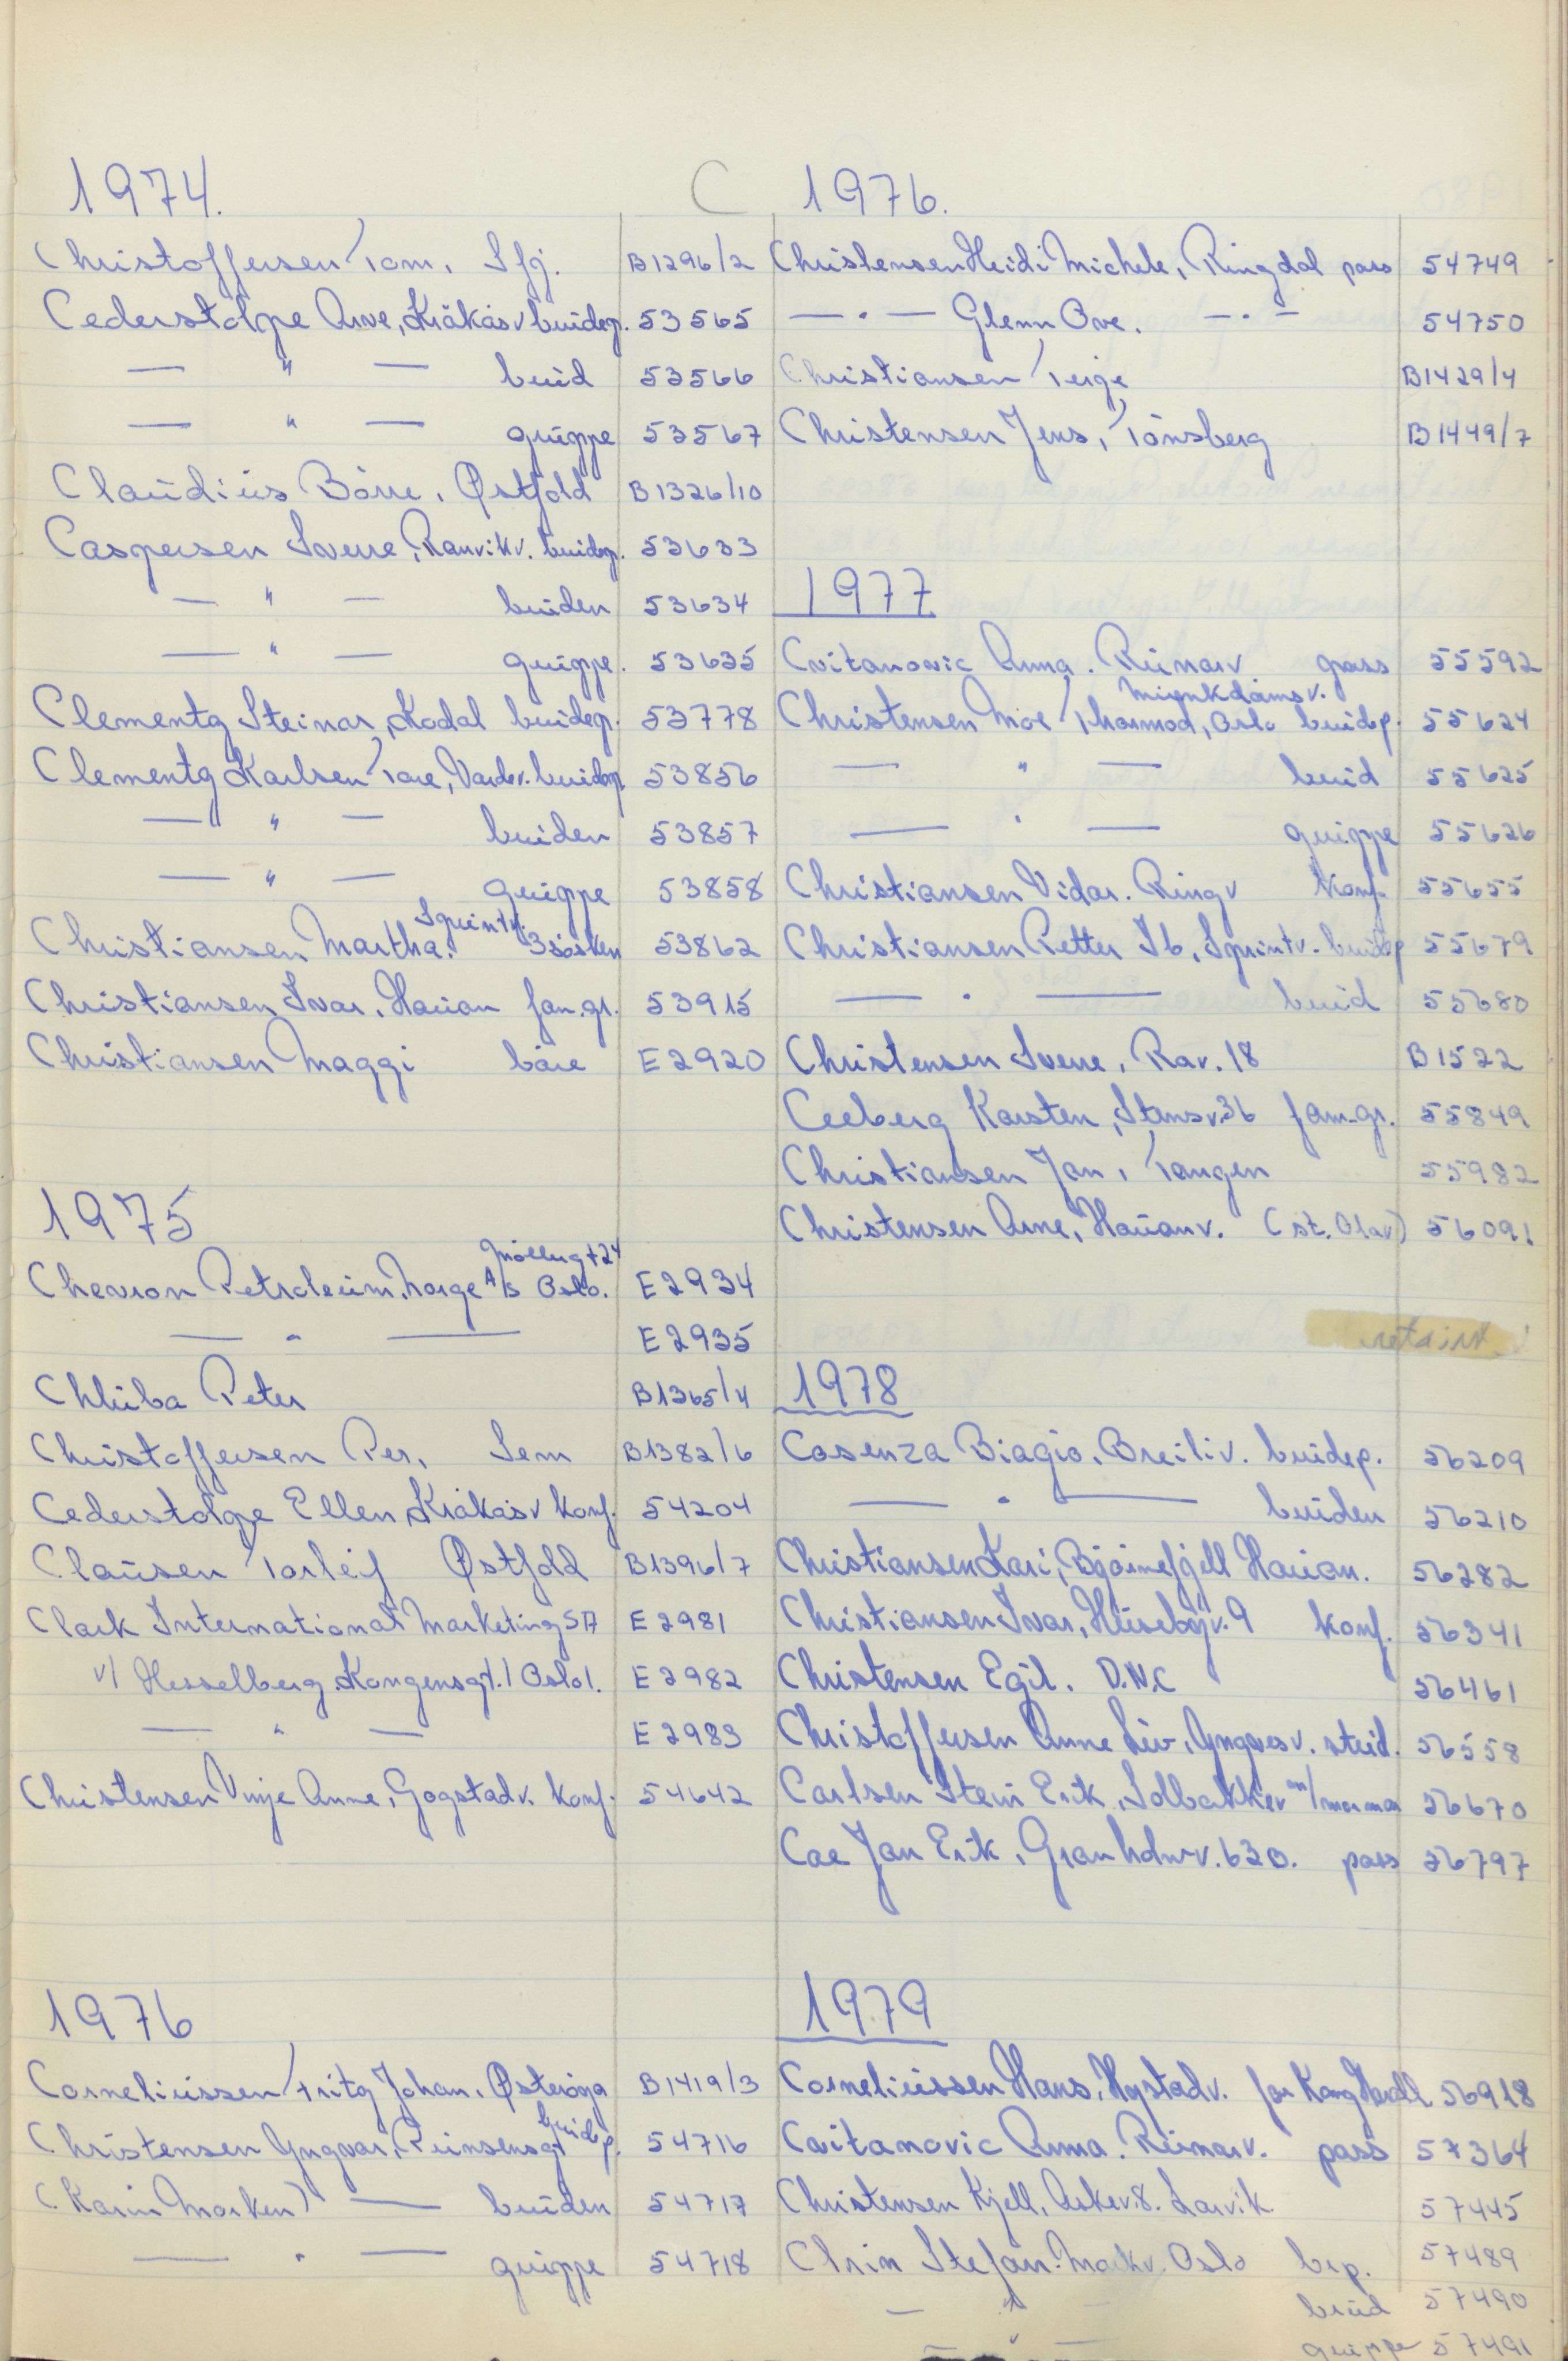 C
1974.
Christoffersen Tom, Sfj. B1296/2
Cederstolpe Arve, Kråkåsv brudep. 53565
— " — brud 53566
— " — gruppe 53567
Claudius Börre, Østfold B1326/10
Caspersen Sverre, Ranvikv. brudep. 53633
— " — bruden 53634
— " — gruppe. 53635
Clementz Steinar, Kodal brudep. 53778
Clementz Karlsen Tore, Vardev. brudep 53856
— " — bruden 53857
— " — gruppe 53858
Sprintv.
Christiansen Martha. 3 søsken 53862
Christiansen Ivar, Hauan fam.gr. 53915
Christiansen Maggi båre E2920
1975
Møllergt 24
Chevron Petroleum Norge A/S Oslo. E2934
— " — E2935
Chluba Peter B1365/4
Christoffersen Per, Sem B1382/6
Cederstolpe Ellen, Kråkåsv konf. 54204
Clausen Torleif Østfold B1396/7
Clark International Marketing SA E2981
v/ Hesselberg, Kongensgt. 1 Oslo 1. E2982
— " — E2983
Christensen Vinje Anne, Gogstadv. konf. 54642
1976
Corneliussen Fritz Johan, Østerøya B1419/3
Christensen Yngvar, Prinsensgt brudep. 54716
(Karin Marken) — bruden 54717
— " — gruppe 54718
1976.
Christensen Heidi Michele, Ringdal pass 54749
— " — Glenn Ove. — " — 54750
Christiansen Terje B1429/4
Christensen Jens, Tönsberg B1449/7
1977
Cvitanovic Anna. Runarv pass 55592
Munkdamsv.
Christensen Moe Thormod, Oslo brudep. 55624
— " — brud 55625
— " — gruppe 55626
Christiansen Vidar. Ringv konf. 55655
Christiansen Petter Ib, Sprintv. brudep 55679
— " — brud 55680
Christensen Sverre, Rav. 18 B1522
Ceeberg Karsten, Stansv.36 fam.gr. 55849
Christiansen Jan, Tangen 55982
Christensen Arne, Hauanv. (St. Olav) 56091
retaint
1978
Cosenza Biagio, Breiliv. brudep. 56209
— " — bruden 56210
Christiansen Kari, Bjørnefjell Hauan. 56282
Christiansen Ivar, Husebyv. 9 konf. 56341
Christensen Egil. D.N.C 56461
Christoffersen Anne Liv, Yngvesv. stud. 56558
Carlsen Stein Erik, Solbakkev m/mormor 56670
Cae Jan Erik, Granholmv. 630. pass 56797
1979
Corneliussen Hans, Nystadv. for Kong Harald 56918
Cvitanovic Anna. Runarv. pass 57364
Christensen Kjell, Askev.8. Larvik 57445
Chrin Stefan. Markv. Oslo brp. 57489
— " — brud 57490
— " — gruppe 57491